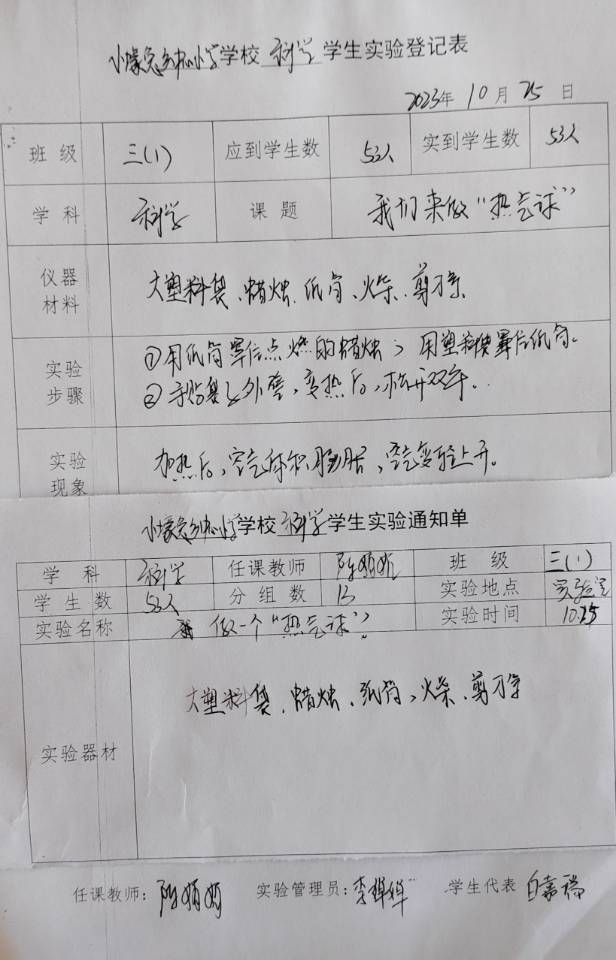 小濠完全中心小学学校 科学 学生实验登记表
2023年 10月 25日
班级 三(1) 应到学生数 53人 实到学生数 53人
学科 科学 课题 我们来做“热气球”
仪器材料 大塑料袋、蜡烛、纸筒、火柴、剪刀等
实验步骤 ①用纸筒罩住点燃的蜡烛；用塑料袋罩后纸筒。
②手贴袋外壁，变热后，松开双手。
实验现象 加热后，空气体积膨胀，空气变轻上升。
学校 科学 学生实验通知单
学科 科学 任课教师 班级 三(1)
学生数 53人 分组数 13 实验地点 实验室
实验名称 做一个“热气球” 实验时间 10.25
实验器材 大塑料袋、蜡烛、纸筒、火柴、剪刀等
任课教师： 实验管理员：李 学生代表 白嘉瑞